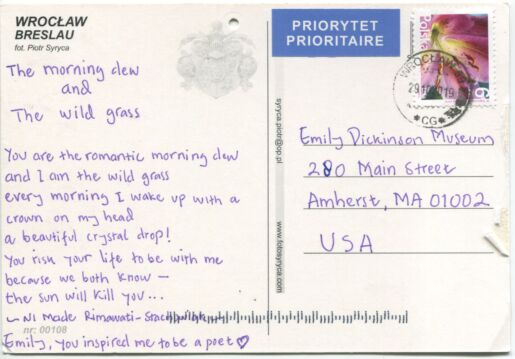 WROCŁAW
BRESLAU
fot. Piotr Syryca
The morning dew
and
The wild grass
You are the romantic morning dew
and I am the wild grass
every morning I wake up with a
crown on my head
a beautiful crystal drop!
You risk your life to be with me
because we both know –
the sun will kill you...
~ Ni Made Rimawati-
Emily, you inspired me to be a poet ♡
nr: 00108
syryca.piotr@op.pl
www.fotosyryca.com
PRIORYTET
PRIORITAIRE
Polska
WROCŁAW
29 10 2019
*CG*
Emily Dickinson Museum
280 Main Street
Amherst, MA 01002
USA